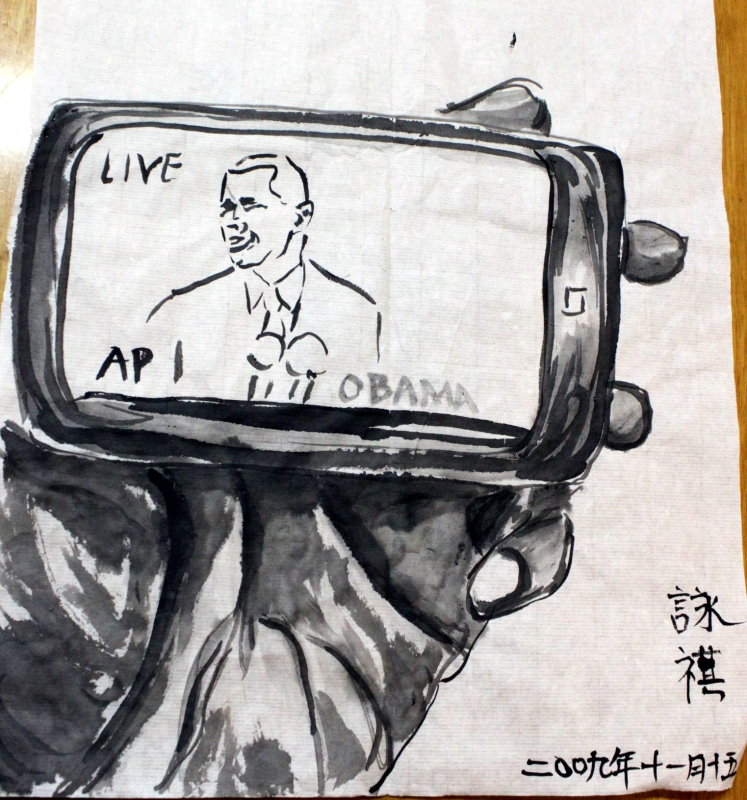 LIVE
AP I
OBAMA
詠祺
二〇〇九年十一月十五